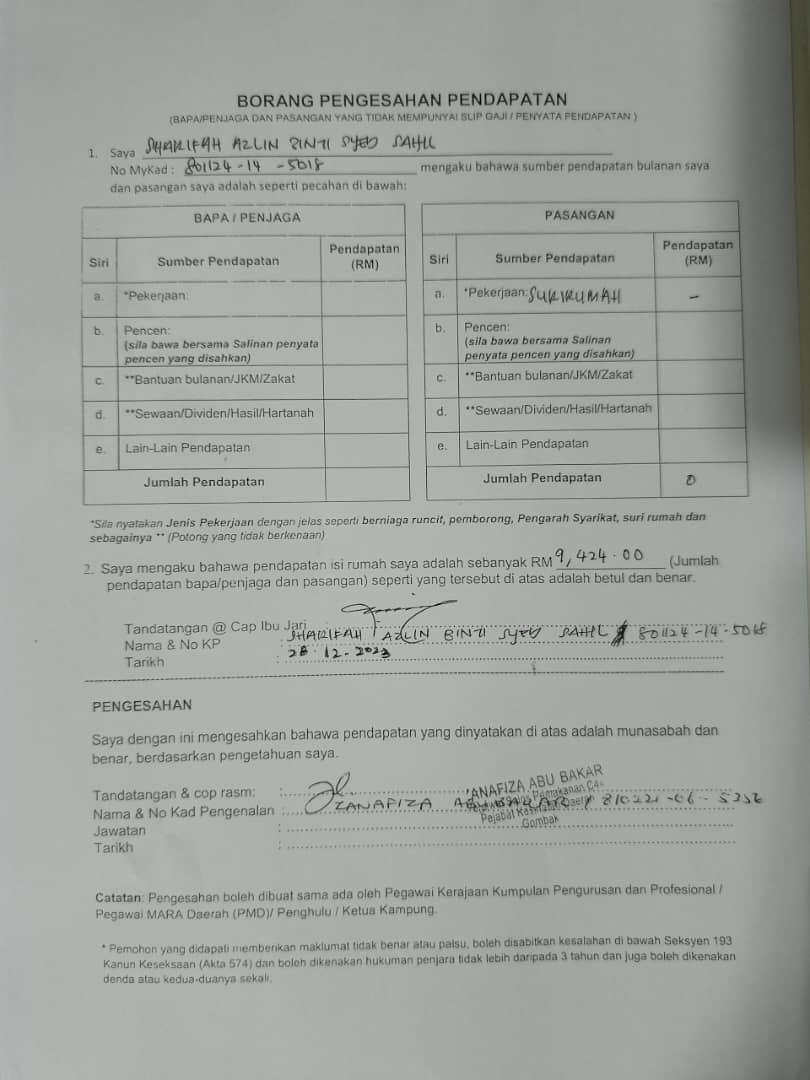 BORANG PENGESAHAN PENDAPATAN
(BAPA/PENJAGA DAN PASANGAN YANG TIDAK MEMPUNYAI SLIP GAJI / PENYATA PENDAPATAN )
1. Saya SHARIFAH AZLIN BINTI SYED SAHIL
No MyKad : 801124-14-5018 mengaku bahawa sumber pendapatan bulanan saya
dan pasangan saya adalah seperti pecahan di bawah:
BAPA / PENJAGA
Siri Sumber Pendapatan Pendapatan (RM)
a. *Pekerjaan:
b. Pencen:
(sila bawa bersama Salinan penyata
pencen yang disahkan)
c. **Bantuan bulanan/JKM/Zakat
d. **Sewaan/Dividen/Hasil/Hartanah
e. Lain-Lain Pendapatan
Jumlah Pendapatan
PASANGAN
Siri Sumber Pendapatan Pendapatan (RM)
a. *Pekerjaan: SURIRUMAH -
b. Pencen:
(sila bawa bersama Salinan
penyata pencen yang disahkan)
c. **Bantuan bulanan/JKM/Zakat
d. **Sewaan/Dividen/Hasil/Hartanah
e. Lain-Lain Pendapatan
Jumlah Pendapatan 0
*Sila nyatakan Jenis Pekerjaan dengan jelas seperti berniaga runcit, pemborong, Pengarah Syarikat, suri rumah dan
sebagainya ** (Potong yang tidak berkenaan)
2. Saya mengaku bahawa pendapatan isi rumah saya adalah sebanyak RM 9,424.00 (Jumlah
pendapatan bapa/penjaga dan pasangan) seperti yang tersebut di atas adalah betul dan benar.
Tandatangan @ Cap Ibu Jari
Nama & No KP : SHARIFAH AZLIN BINTI SYED SAHIL 801124-14-5018
Tarikh : 28.12.2023
PENGESAHAN
Saya dengan ini mengesahkan bahawa pendapatan yang dinyatakan di atas adalah munasabah dan
benar, berdasarkan pengetahuan saya.
Tandatangan & cop rasm: :
Nama & No Kad Pengenalan : ZANAFIZA ABU BAKAR / 810221-06-5336
ANAFIZA ABU BAKAR
Pemakanan C4
Pejabat Kesihatan Daerah
Gombak
Jawatan :
Tarikh :
Catatan: Pengesahan boleh dibuat sama ada oleh Pegawai Kerajaan Kumpulan Pengurusan dan Profesional /
Pegawai MARA Daerah (PMD)/ Penghulu / Ketua Kampung.
* Pemohon yang didapati memberikan maklumat tidak benar atau palsu, boleh disabitkan kesalahan di bawah Seksyen 193
Kanun Keseksaan (Akta 574) dan boleh dikenakan hukuman penjara tidak lebih daripada 3 tahun dan juga boleh dikenakan
denda atau kedua-duanya sekali.